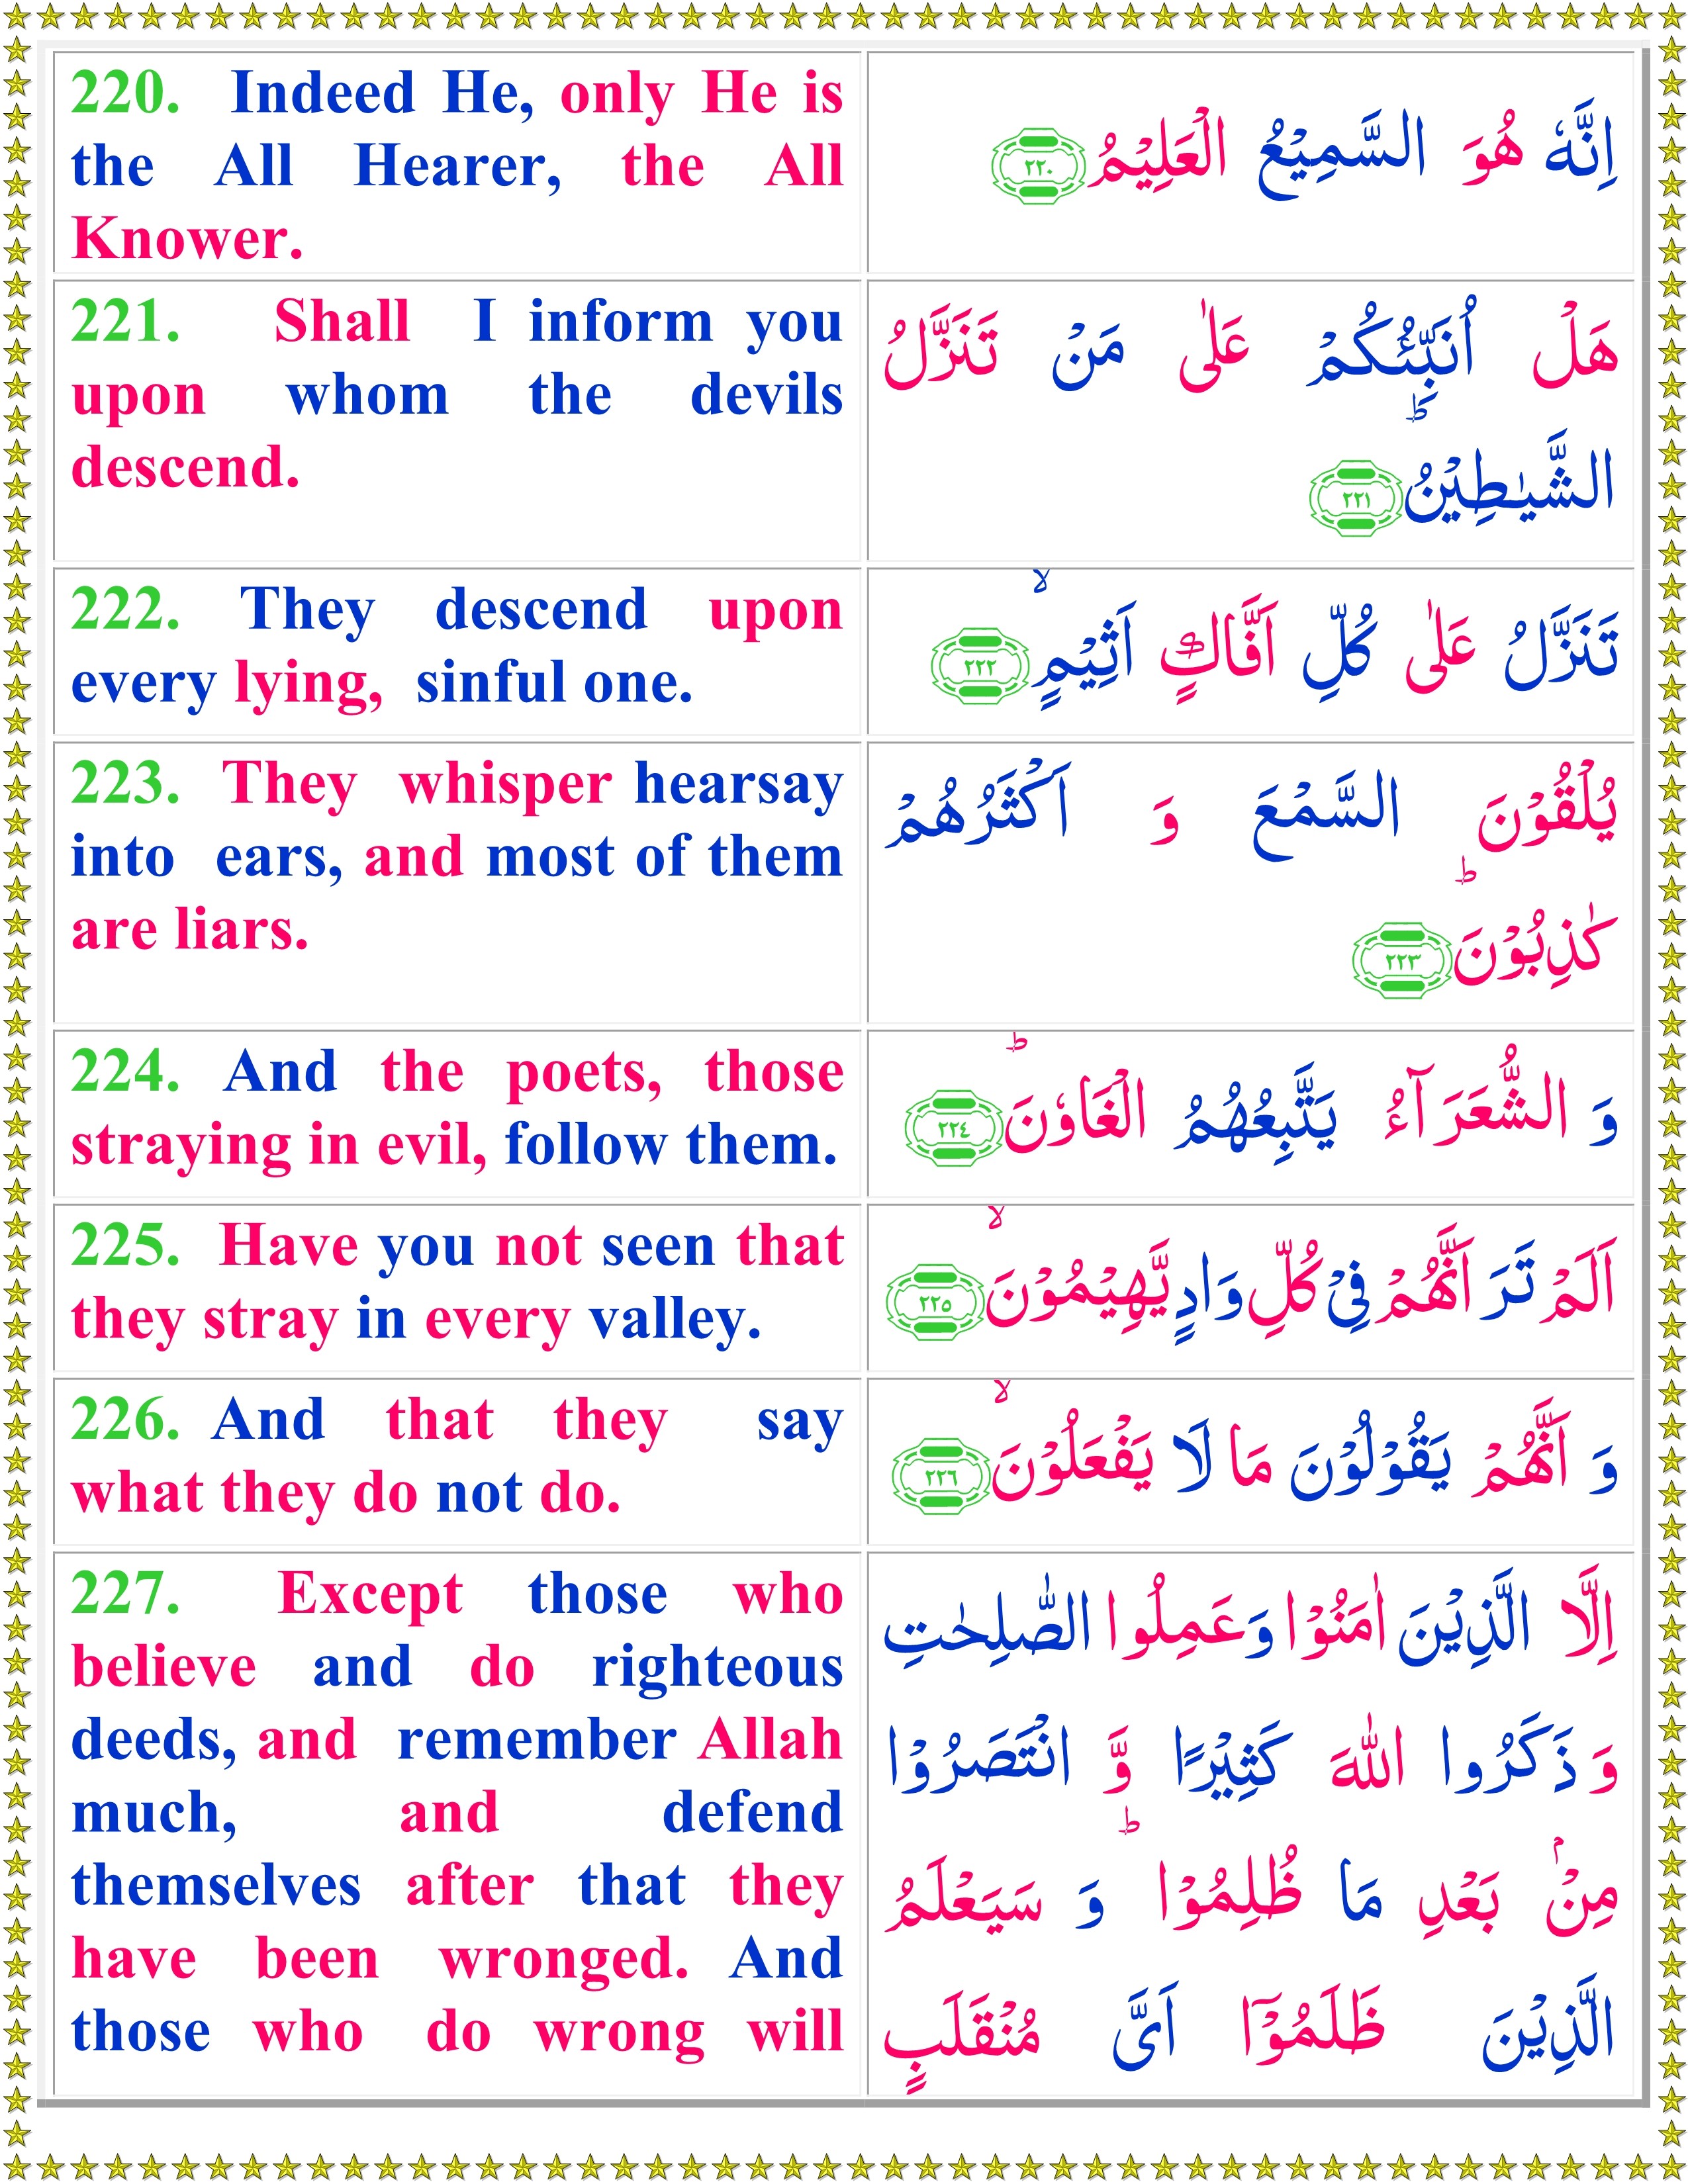 220. Indeed He, only He is
the All Hearer, the All
Knower.
اِنَّهٗ هُوَ السَّمِيْعُ الْعَلِيْمُ ﴿٢٢٠﴾
221. Shall I inform you
upon whom the devils
descend.
هَلْ اُنَبِّئُكُمْ عَلٰى مَنْ تَنَزَّلُ
الشَّيٰطِيْنُ ؕ ﴿٢٢١﴾
222. They descend upon
every lying, sinful one.
تَنَزَّلُ عَلٰى كُلِّ اَفَّاكٍ اَثِيْمٍ ۙ ﴿٢٢٢﴾
223. They whisper hearsay
into ears, and most of them
are liars.
يُلْقُوْنَ السَّمْعَ وَ اَكْثَرُهُمْ
كٰذِبُوْنَ ؕ ﴿٢٢٣﴾
224. And the poets, those
straying in evil, follow them.
وَ الشُّعَرَآءُ يَتَّبِعُهُمُ الْغَاوٗنَ ؕ ﴿٢٢٤﴾
225. Have you not seen that
they stray in every valley.
اَلَمْ تَرَ اَنَّهُمْ فِيْ كُلِّ وَادٍ يَّهِيْمُوْنَ ۙ ﴿٢٢٥﴾
226. And that they say
what they do not do.
وَ اَنَّهُمْ يَقُوْلُوْنَ مَا لَا يَفْعَلُوْنَ ۙ ﴿٢٢٦﴾
227. Except those who
believe and do righteous
deeds, and remember Allah
much, and defend
themselves after that they
have been wronged. And
those who do wrong will
اِلَّا الَّذِيْنَ اٰمَنُوْا وَعَمِلُوا الصّٰلِحٰتِ
وَ ذَكَرُوا اللّٰهَ كَثِيْرًا وَّ انْتَصَرُوْا
مِنْۢ بَعْدِ مَا ظُلِمُوْا ؕ وَ سَيَعْلَمُ
الَّذِيْنَ ظَلَمُوْۤا اَىَّ مُنْقَلَبٍ